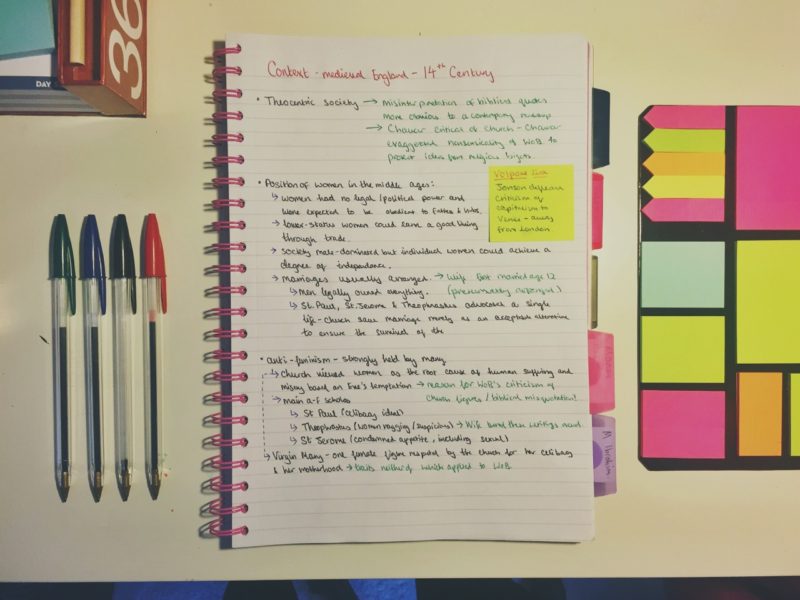 36
DAY
Context - medieval England - 14th Century
• Theocentric society → misinterpretation of biblical quotes
more obvious to a contemporary
→ Chaucer critical of Church - Chaucer
exaggerated nonsensicality of WoB to
protect ideas from religious bigots.
Volpone link
Jonson defers
criticism of
capitalism to
Venice - away
from London
• Position of women in the middle ages:
↳ women had no legal/political power and
were expected to be obedient to father &
↳ lower-status women could earn a good living
through trade.
↳ society male-dominated but individual women could achieve a
degree of independence.
↳ marriages usually arranged. → Wife first married age 12
↳ men legally owned everything. (presumably
↳ St. Paul, St. Jerome & Theophrastus advocated a single
life - church saw marriage merely as an acceptable alternative
to ensure the survival of the
• anti-feminism - strongly held by many
↳ Church viewed women as the root cause of human suffering and
misery based on Eve's temptation → reason for WoB's criticism of
↳ main a-f scholars Church figures/biblical misquotation!
↳ St Paul (celibacy ideal)
↳ Theophrastus (women nagging/suspicious) → Wife these writings
↳ St Jerome (condemned appetite, including sexual)
↳ Virgin Mary - one female figure respected by the church for her celibacy
& her motherhood → traits neither of which applied to WoB.
M Ibrahim